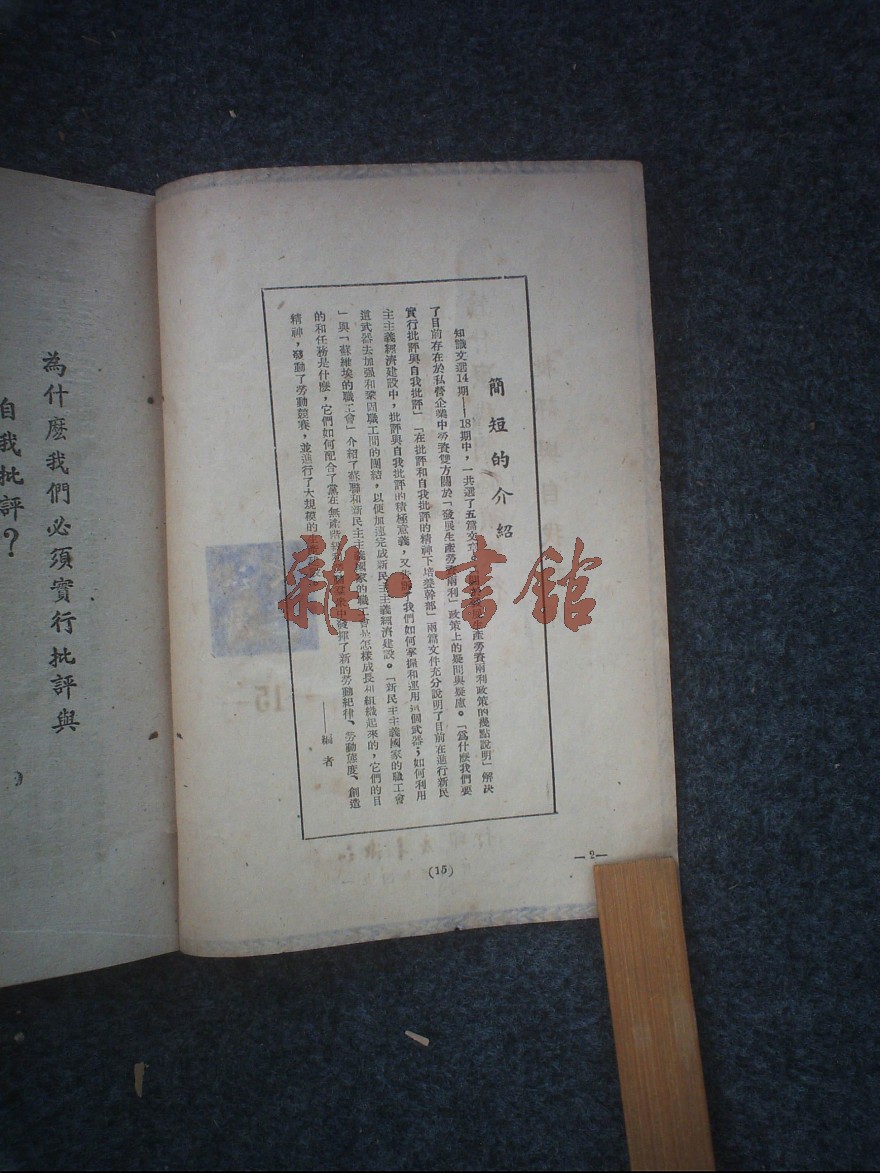 簡短的介紹
知識文選14期——18期中，一共選了五篇文章
生產勞資兩利政策的幾點說明」解決
了目前存在於私營企業中勞資雙方關於「發展生產勞資兩利」政策上的疑問與疑慮。「為什麼我們要
實行批評與自我批評」「在批評和自我批評的精神下培養幹部」兩篇文件充分說明了目前在進行新民
主主義經濟建設中，批評與自我批評的積極意義，又告訴了我們如何掌握和運用這個武器；如何利用
這武器去加强和鞏固職工間的團結，以便加速完成新民主主義經濟建設。「新民主主義國家的職工會
」與「蘇維埃的職工會」介紹了蘇聯和新民主主義國家的職工會是怎樣成長和組織起來的，它們的目
的和任務是什麼，它們如何配合了黨在無產階級和
中發揮了新的勞動紀律、勞動態度、創造
精神，發動了勞動競賽，並進行了大規模的生產
——編者
(15)
—2—
為什麼我們必須實行批評與
自我批評？
雜·書館
15